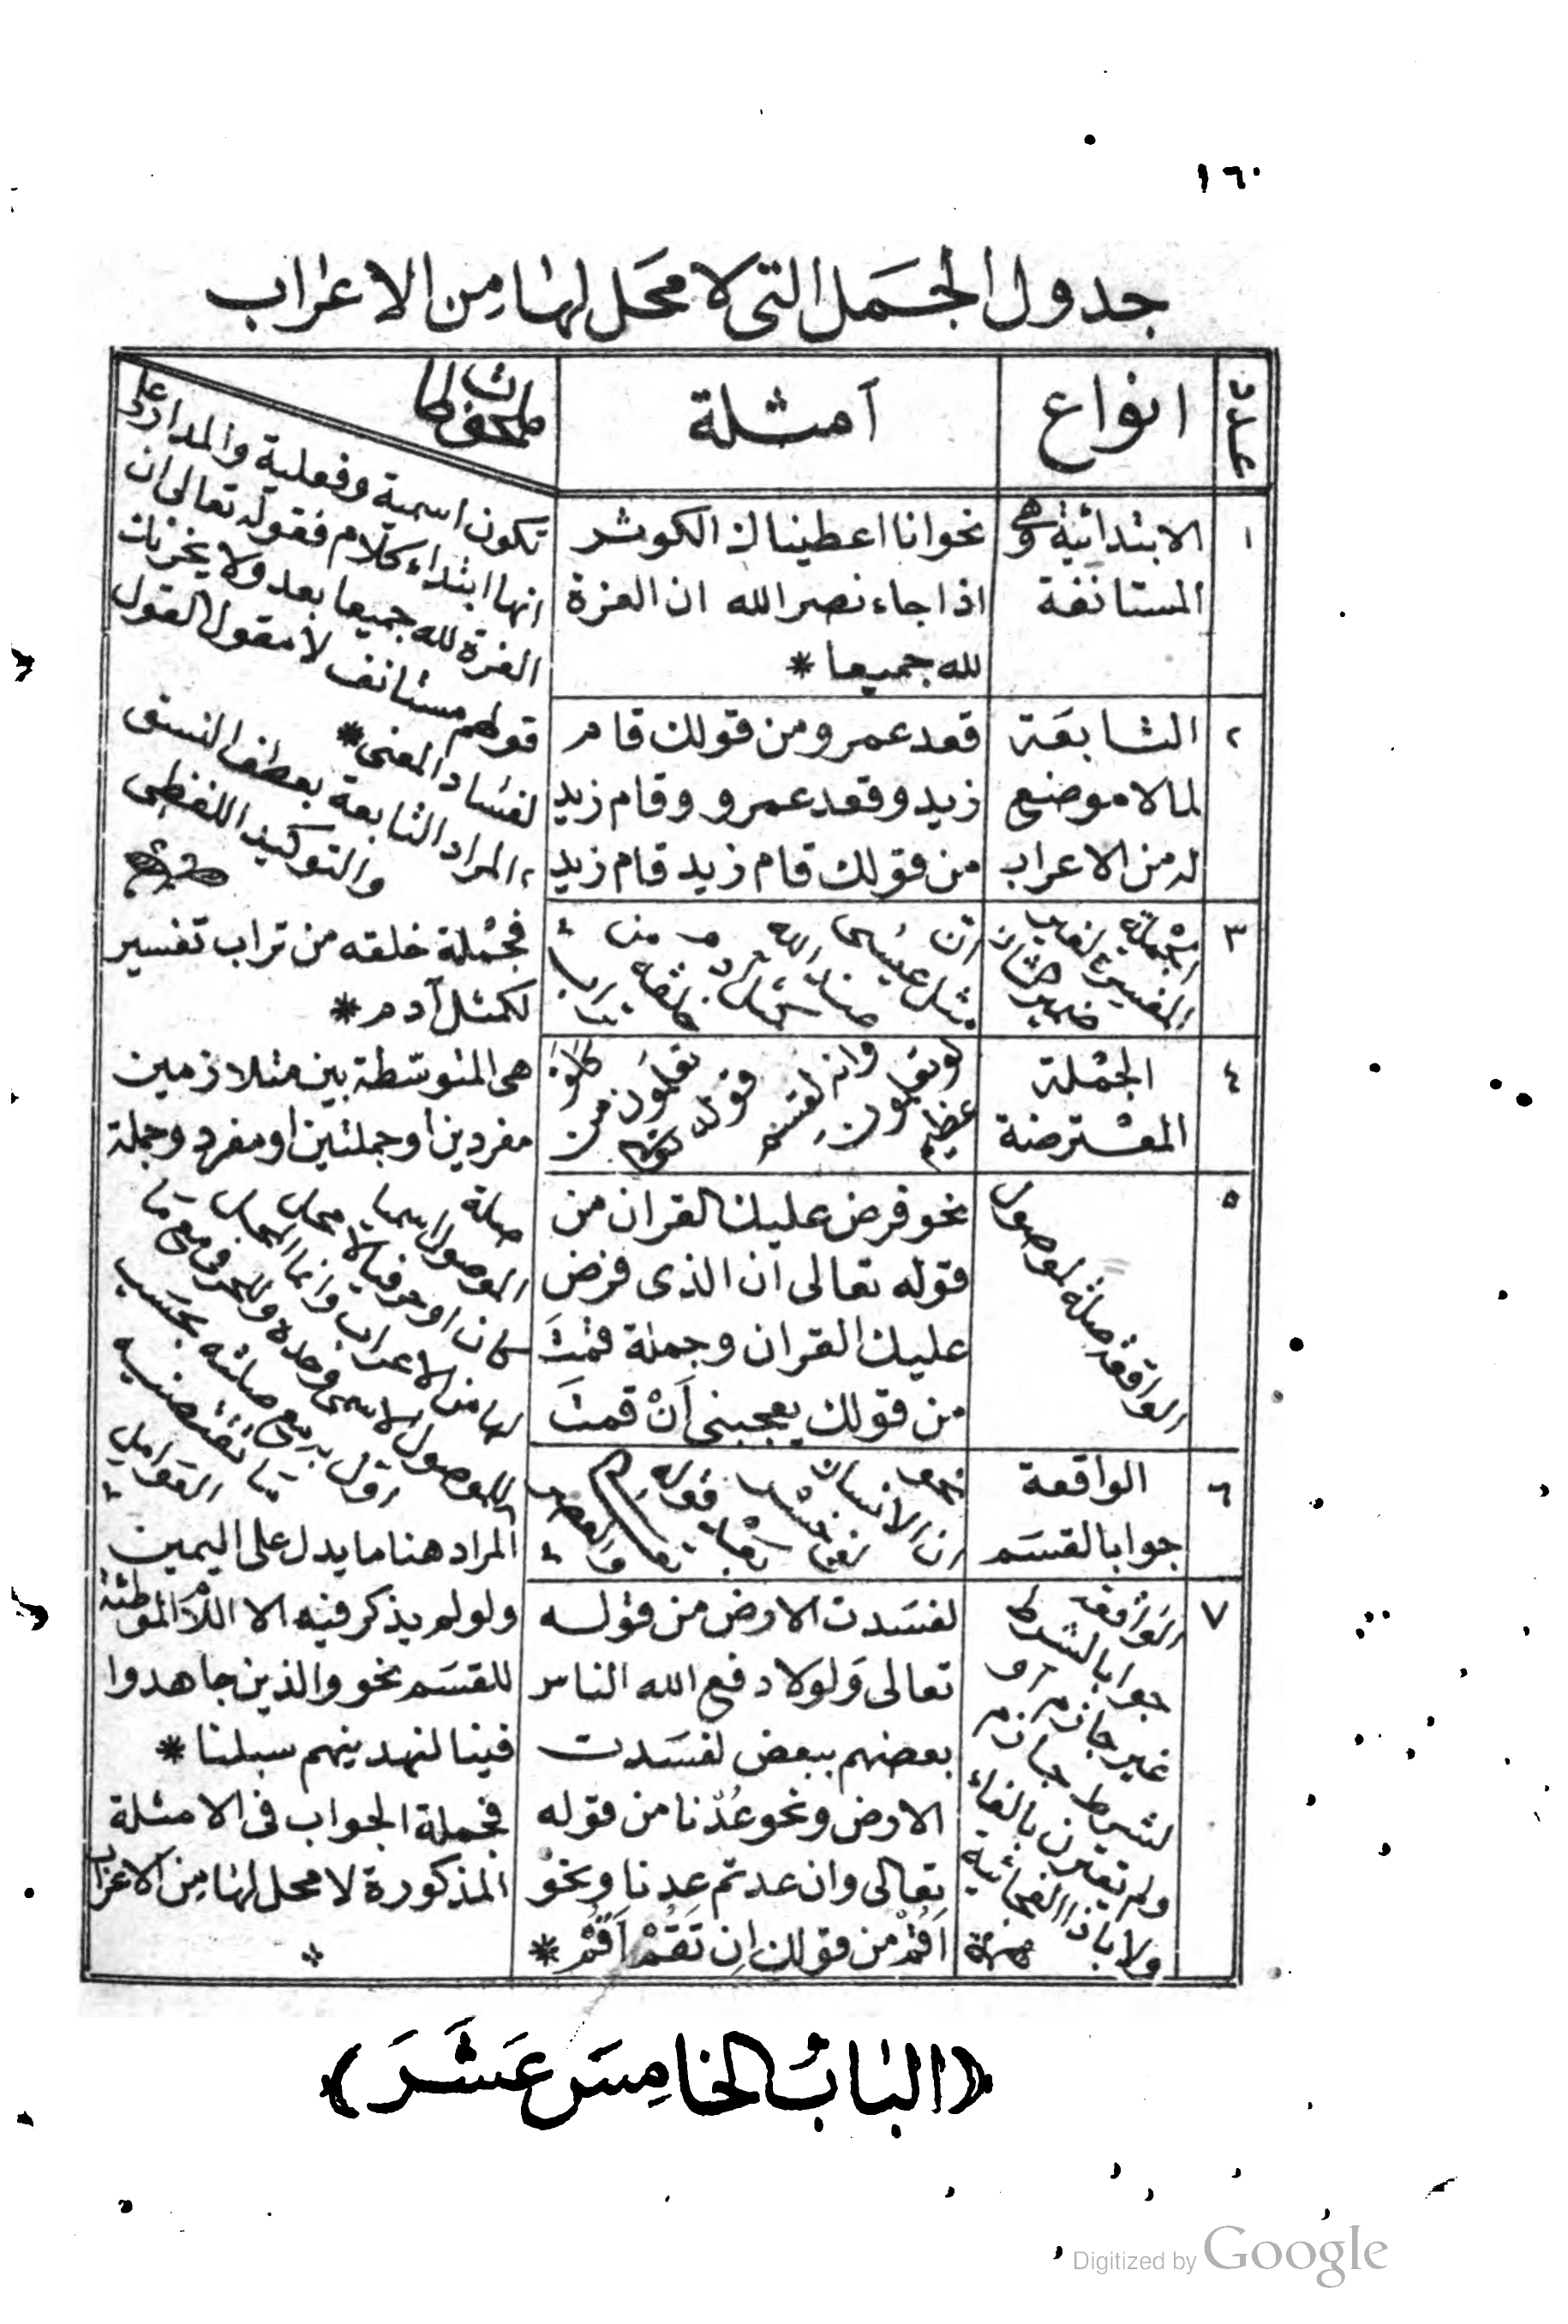 ١٦٠
جدول الجمل التى لا محل لها من الاعراب
عدد
انواع
آمثلة
ملحوظات
١
الابتدائية وهى
المستانفة
نحو انا اعطيناك الكوثر
اذا جاء نصر الله ان العزة
لله جميعا *
تكون اسمية وفعلية والمدار على
انها ابتداء كلام فقوله تعالى ان
العزة لله جميعا بعد ولا يحزنك
قولهم مستانف لا مقول القول
لفساد المعنى *
٢
التابعة
لما لا موضع
له من الاعراب
قعد عمرو من قولك قام
زيد وقعد عمرو وقام زيد
من قولك قام زيد قام زيد
٢ المراد التابعة بعطف النسق
والتوكيد اللفظى
٣
الجملة
المفسرة لغير
ضمير الشان
ان مثل عيسى
عند الله كمثل آدم
خلقه من تراب
فجملة خلقه من تراب تفسير
لكمثل آدم *
٤
الجملة
المعترضة
لو تعلمون من قوله
وانه لقسم لو تعلمون
عظيم
هى المتوسطة بين متلازمين
مفردين او جملتين او مفرد وجملة
٥
الواقعة صلة لموصول
نحو فرض عليك القران من
قوله تعالى ان الذى فرض
عليك القران وجملة قمتَ
من قولك يعجبنى اَنْ قمتَ
صلة
الموصول اسميا
كان او حرفيا لا محل
لها من الاعراب وانما المحل
للموصول الاسمى وحده وللحرفى مع ما
اول به مع صلته بحسب
ما تقتضيه
العوامل
٦
الواقعة
جوابا لقسم
نحو
ان الانسان
لفى خسر من قوله
تعالى والعصر
المراد هنا ما يدل على اليمين
ولو لم يذكر فيه الا اللام الموطئة
للقسم نحو والذين جاهدوا
فينا لنهدينهم سبلنا *
٧
الواقعة
جوابا لشرط
غير جازم او
لشرط جازم
ولم تقترن بالفاء
ولا باذا الفجائية
لفسدت الارض من قوله
تعالى وَلولا دفع الله الناس
بعضهم ببعض لفسدت
الارض ونحو عُدْنا من قوله
تعالى وان عدتم عدنا ونحو
اَقُمْ من قولك اِن تَقُمْ اَقُمْ *
فجملة الجواب فى الامثلة
المذكورة لا محل لها من الاعراب
﴿الباب الخامس عشر﴾
Digitized by Google